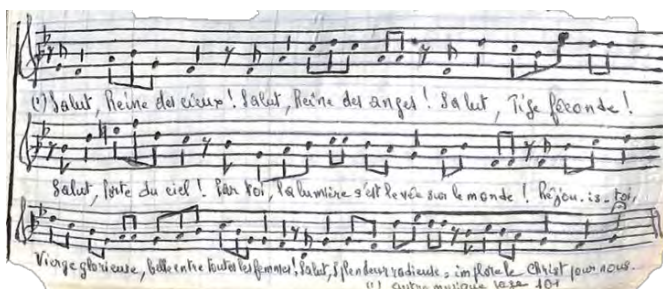 (1) Salut, Reine des cieux ! Salut, Reine des anges ! Salut, Tige féconde !
Salut, Porte du ciel ! Par toi, la lumière s'est levée sur le monde ! Réjou-is-toi,
Vierge glorieuse, belle entre toutes les femmes ! Salut, Splendeur radieuse = implore le Christ pour nous...
(1) autre musique page 101